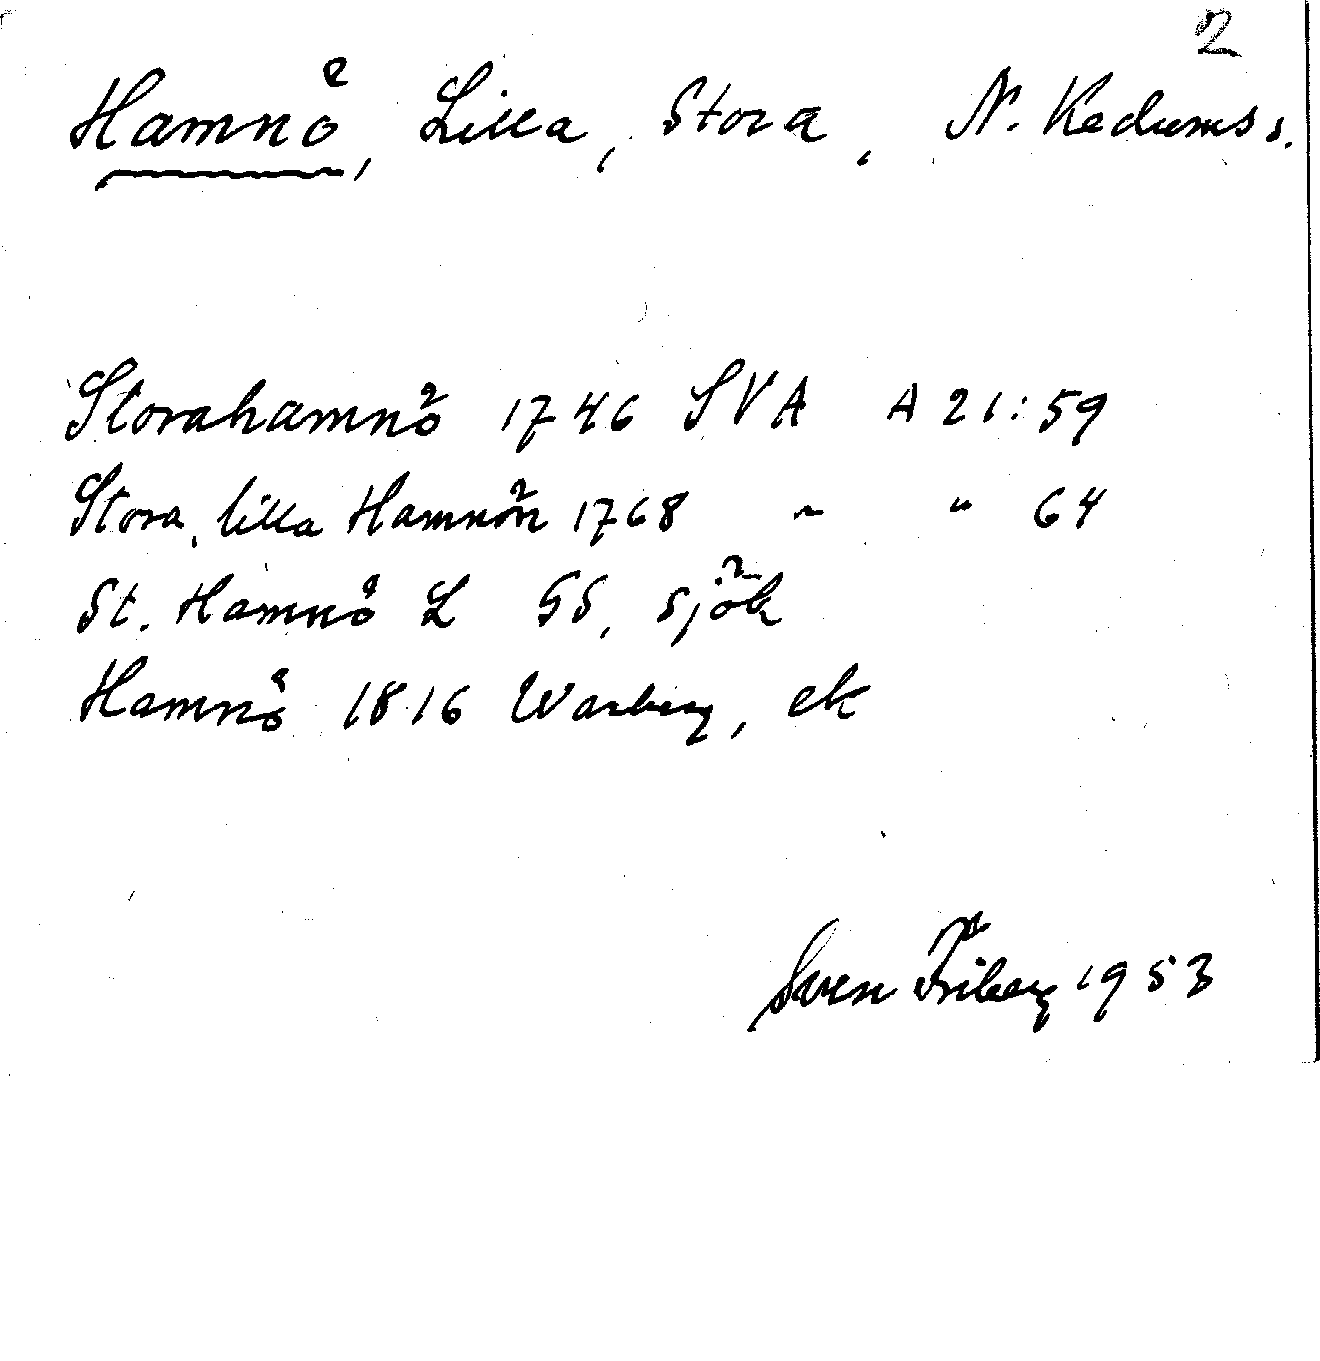 2
Hamnö, Lilla, Stora, N. Kedums s.
Storahamnö 1746 SVA A 21:59
Stora, lilla Hamnön 1768 " " 64
St. Hamnö L GS, sjök
Hamnö 1816 Warberg, ek
Sven Friberg 1953